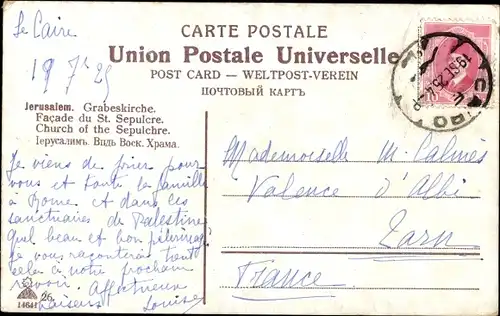 CARTE POSTALE
Union Postale Universelle
POST CARD — WELTPOST-VEREIN
ПОЧТОВЫЙ КАРТЪ
Le Caire
19 7 25
Jerusalem. Grabeskirche.
Façade du St. Sepulcre.
Church of the Sepulchre.
Іерусалимъ. Видъ Воск. Храма.
Je viens de prier pour
vous et toute la famille
à Rome et dans ces
sanctuaires de Palestine
Quel beau et bon pèlerinage
Je vous raconterai tout
cela à notre prochain
revoir. Affectueux
baisers Louise
Mademoiselle M. Calmès
Valence d'Albi
Tarn
France
CAIRO
14641
26.